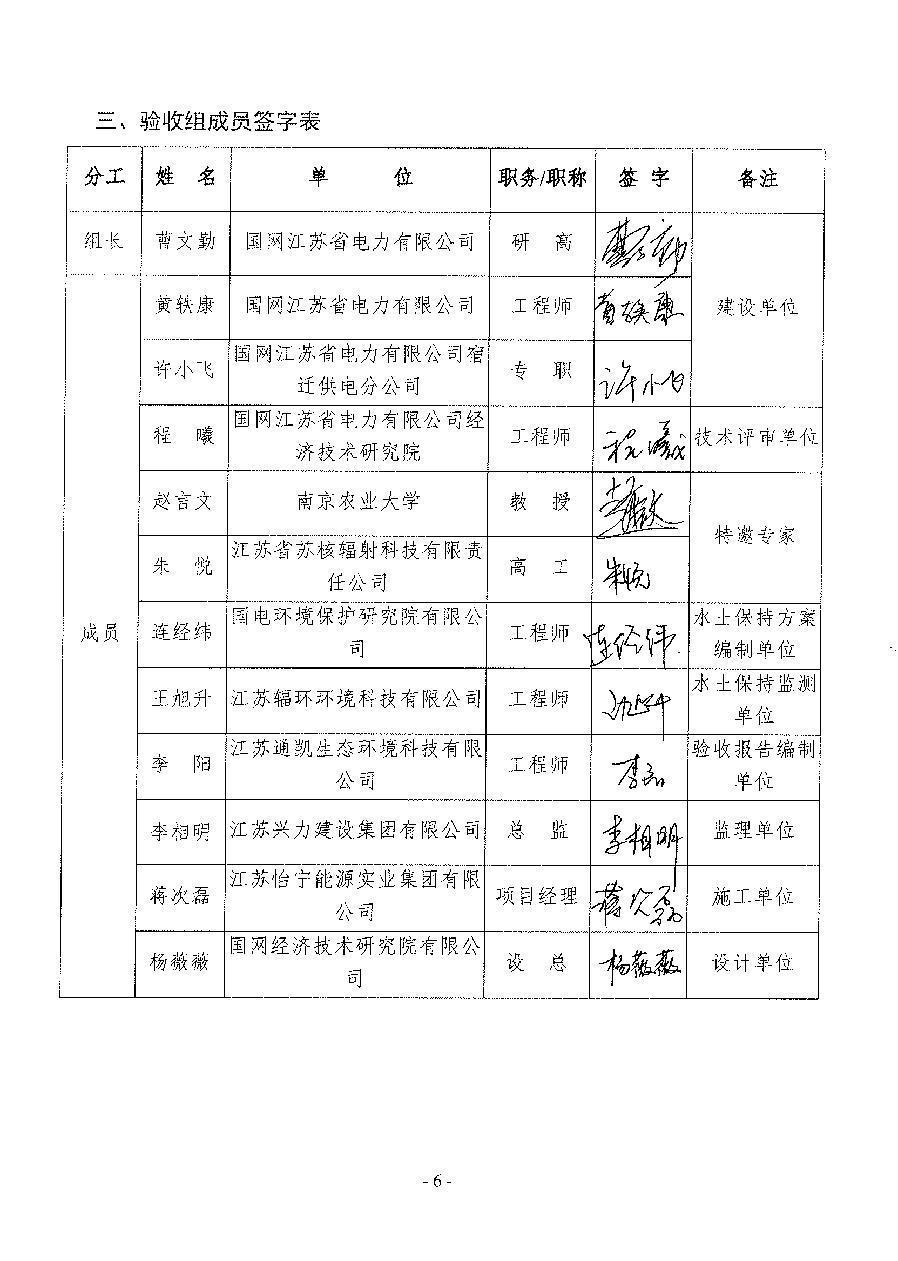 三、验收组成员签字表
分工 姓 名 单 位 职务/职称 签 字 备注
组长 曹文勤 国网江苏省电力有限公司 研 高 建设单位
黄轶康 国网江苏省电力有限公司 工程师 黄轶康
许小飞 国网江苏省电力有限公司宿
迁供电分公司 专 职 许小飞
程 曦 国网江苏省电力有限公司经
济技术研究院 工程师 程曦 技术评审单位
赵言文 南京农业大学 教 授 特邀专家
朱 悦 江苏省苏核辐射科技有限责
任公司 高 工 朱悦
成员 连经纬 国电环境保护研究院有限公
司 工程师 连经纬 水土保持方案
编制单位
王旭升 江苏辐环环境科技有限公司 工程师 水土保持监测
单位
李 阳 江苏通凯生态环境科技有限
公司 工程师 李阳 验收报告编制
单位
李相明 江苏兴力建设集团有限公司 总 监 李相明 监理单位
蒋次磊 江苏怡宁能源实业集团有限
公司 项目经理 蒋次磊 施工单位
杨薇薇 国网经济技术研究院有限公
司 设 总 杨薇薇 设计单位
- 6 -